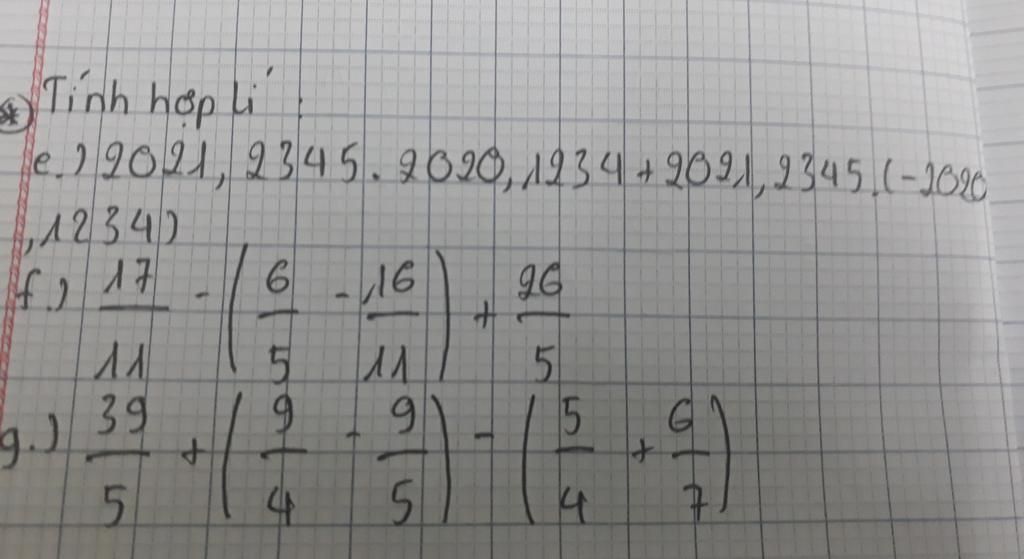 * Tính hợp lí :
e.) 2021,2345.2020,1234+2021,2345.(-2020
,1234)
f.) 17/11 - (6/5 - 16/11) + 26/5
g.) 39/5 + (9/4 - 9/5) - (5/4 + 6/7)